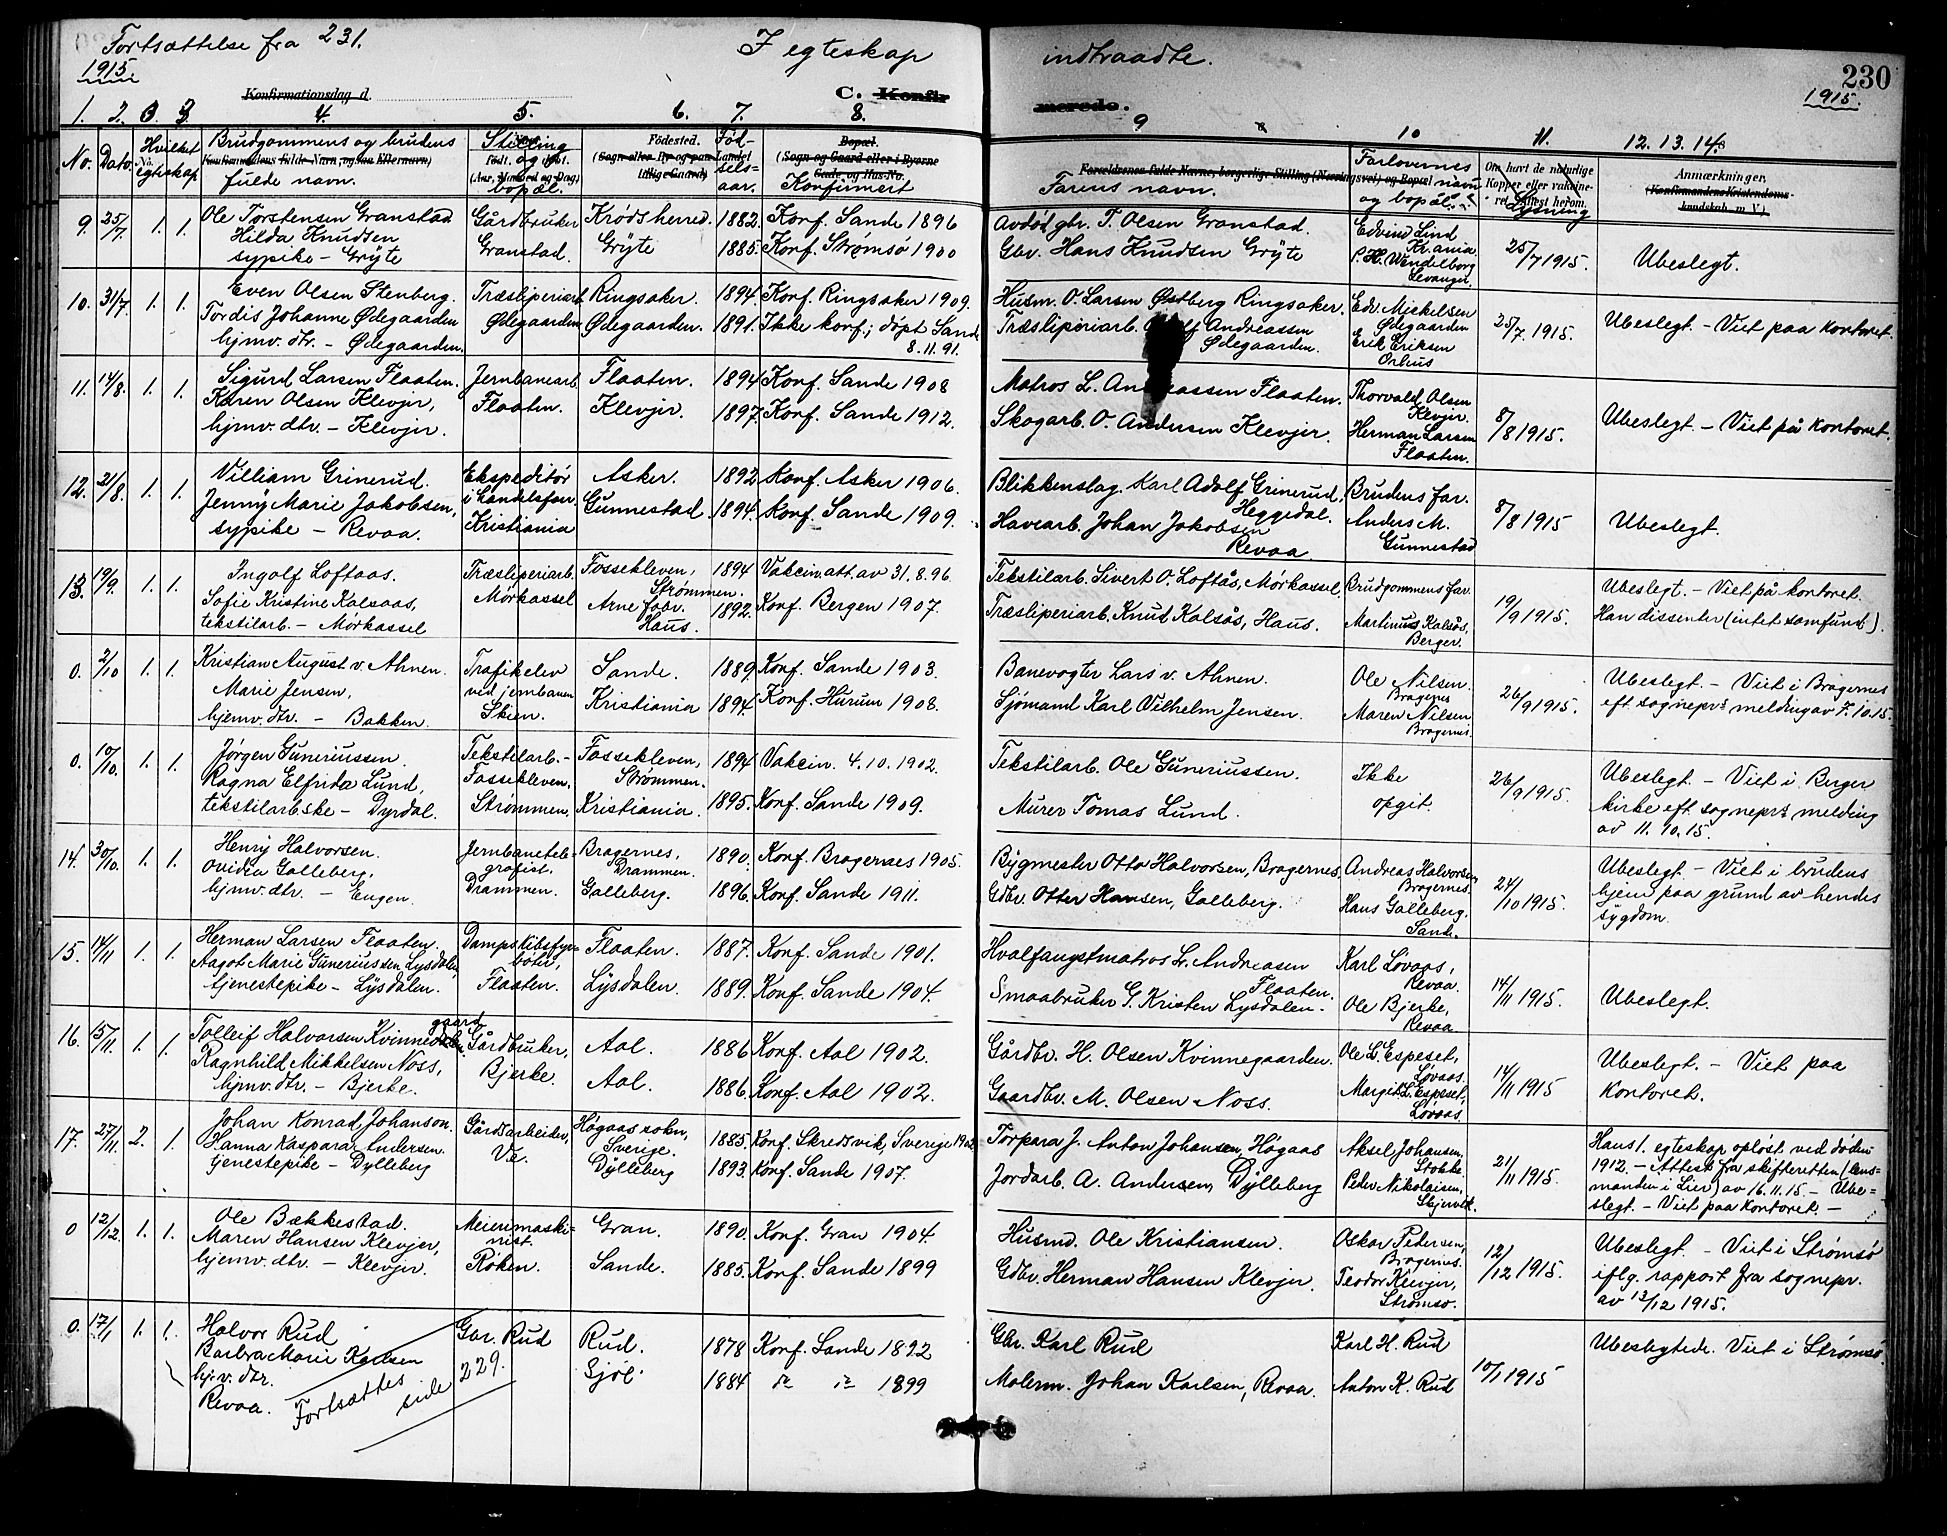 Fortsættelse fra 231.
I egteskap indtraadte.
230
1915
1915.
Konfirmationsdag d.
C. Konfirmerede.
1. 2. 3. 4. 5. 6. 7. 8. 9 10 11. 12. 13. 14.
No. Dato. Hvilket egteskap. Brudgommens og brudens fulde navn. Stilling og bopæl. Födested. Födselsaar. Bopæl. Konfirmert
Farens navn. Forlovernes navn og bopæl. Lysning Anmærkninger.
9. 25/7 1. 1. Ole Torstensen Granstad Gårdbruker Krødsherred. 1882. Konf. Sande 1896 Avdød gbr. T. Olsen Granstad. Edvind Lind Kr.ania
Hilda Knudsen sypike – Grÿte Granstad. Grÿte 1885. Konf. Strømsø 1900 Gbr. Hans Knudsen Grÿte P. H. Wendelborg Levanger. 25/7 1915. Ubeslegt.
10. 31/7. 1. 1. Even Olsen Stenberg. Træsliperiarb. Ringsaker. 1894 Konf. Ringsaker 1909. Husm. O. Larsen Østberg Ringsaker. Edv. Mickelsen Ødegaarden
Tordis Johanne Ødegaarden hjmv. dtr. – Ødegaarden. Ødegaarden Ødegaarden. 1891. Ikke konf; døpt Sande 8.11.91. Træsliperiarb. Andreassen Ødegaarden. Erik Eriksen Orhus 25/7. 1915. Ubeslegt. – Viet paa kontoret.
11. 14/8. 1. 1. Sigurd Larsen Flaaten. Jernbanearb. Flaaten. 1894 Konf. Sande 1908 Matros L. Andreassen Flaaten. Thorvald Olsen Klevjer.
Karen Olsen Klevjer, hjmv. dtr. – Klevjer. Flaaten. Klevjer. 1897. Konf. Sande 1912. Skogarb. O. Andersen Klevjer. Herman Larsen Flaaten. 8/8 1915. Ubeslegt. – Viet på kontoret.
12. 21/8. 1. 1. William Grinerud. Ekspeditør i Landelsforr. Asker. 1892 Konf. Asker 1906. Blikkenslag. Karl Adolf Grinerud, Heggedal. Brudens far.
Jennÿ Marie Jakobsen, sypike – Revaa. Kristiania Gunnestad 1894. Konf. Sande 1909. Havearb. Johan Jakobsen Revaa. Anders M. Gunnestad 8/8 1915 Ubeslegt.
13. 19/9. 1. 1. Ingolf Loftaas. Træsliperiarb. Fossekleven, Strømmen. 1894 Vakcin. att. av 31.8.96. Tekstilarb. Sivert O. Loftås, Mørkassel Brudgommens far.
Sofie Kristine Kalsaas, tekstilarb. – Mørkassel Mørkassel Arne fabr. Haus. 1892. Konf. Bergen 1907. Træsliperiarb. Knut Kalsås, Haus. Martinus Kalsås, Berger. 19/9 1915. Ubeslegt. – Viet på kontoret. Han dissenter (intet samfund).
0. 2/10 1. 1. Kristian August v. Ahnen. Trafikelev ved jernbanen Sande. 1889. Konf. Sande 1903. Banevogter Lars v. Ahnen. Ole Nilsen. Bragernes
Marie Jensen, hjemv. dtr. – Bakken. Skien. Kristiania 1894. Konf. Hurum 1908. Sjømand Karl Vilhelm Jensen. Maren Nilsen Bragernes. 26/9 1915. Ubeslegt. – Viet i Bragernes eft. sognepr's melding av 7.10.15.
0. 10/10. 1. 1. Jørgen Guneriussen Tekstilarb. – Fossekleven, Fossekleven, Strømmen. 1894 Vakcin. 4.10.1902. Tekstilarb. Ole Guneriussen. Ikke
Ragna Elfrida Lund, tekstilarbske – Dyrdal. Strømmen. Kristiania. 1895. Konf. Sande 1909. Murer Tomas Lund. opgit. 26/9 1915. Ubeslegt. – Viet i Berger kirke eft. sognepr's melding av 11.10.15.
14. 30/10. 1. 1. Henrÿ Halvorsen. Jernbanetelegrafist, Bragernes, Drammen. 1890. Konf. Bragernes 1905. Bÿgmester Otto Halvorsen, Bragernes Andreas Halvorsen Bragernes.
Ovidia Galleberg, hjmv. dtr. – Engen. Drammen. Galleberg. 1896. Konf. Sande 1911. Gdbr. Otter Hansen, Galleberg. Hans Galleberg. Sande. 24/10 1915. Ubeslegt. – Viet i brudens hjem paa grund av hendes sygdom.
15. 14/11 1. 1. Herman Larsen Flaaten. Dampskibsfyrbøter, Flaaten. 1887. Konf. Sande 1901. Hvalfangstmatros L. Andreasen Flaaten. Karl Løvaas, Revaa.
Aagot Marie Guneriussen Lysdalen tjenestepike – Lÿsdalen. Flaaten. Lÿsdalen. 1889. Konf. Sande 1904. Smaabruker G. Kristen Lysdalen. Ole Bjerke, Revaa. 14/11 1915. Ubeslegt.
16. 15/11. 1. 1. Tolleif Halvorsen Kvinnegaard Gårdbruker, Aal. 1886 Konf. Aal 1902. Gårdbr. H. Olsen Kvinnegaarden. Ole L. Espeset, Løvaas.
Ragnhild Mikkelsen Noss, hjmv. dtr. – Bjerke. Bjerke. Aal. 1886 Konf. Aal 1902. Gaardbr. M. Olsen Noss. Margit L. Espeset, Løvaas 14/11 1915 Ubeslegt. – Viet paa kontoret.
17. 27/11. 2. 1. Johan Konrad Johanson. Gårdsarbeider, Høgaas sokn, Sverige. 1885. Konf. Skredsvik, Sverige 1902 Torpara J. Anton Johansen, Høgaas Aksel Johansen, Stokke
Hanna Kaspara Andersen. tjenestepike – Dylleberg Ve. Dÿlleberg 1893. Konf. Sande 1907. Jordarb. A. Andersen, Dÿlleberg Peder Nikolaisen, Skjervik. 21/11 1915. Hans 1. egteskap opløst ved døden 1912. – Attest fra skifteretten (lensmanden i Lier) av 16.11.15. – Ubeslegt. – Viet paa kontoret. –
0 12/12. 1. 1. Ole Bækkestad. Meierimaskinist. Gran. 1890. Konf. Gran 1904. Husmd. Ole Kristiansen. Oskar Pedersen, Bragernes.
Maren Hansen Klevjer, hjemv. dtr. – Klevjer. Røken. Sande. 1885. Konf. Sande 1899 Gdbr. Herman Hansen Klevjer. Teodor Klevjer, Strømsø. 12/12 1915. Ubeslegt. – Viet i Strømsø iflg. rapport fra sognepr. av 13/12 1915.
0. 17/1 1. 1. Halvor Rud Gbr. Rud Rud. 1878 Konf. Sande 1892 Gbr. Karl Rud Karl H. Rud
Barbra Marie Karlsen hj. v. dtr. Revaa. Sjøl 1884 do do 1899 Malerm. Johan Karlsen, Revaa. Anton K. Rud 10/1 1915 Ubeslegtede. Viet i Strømsø.
Fortsættes side 229.